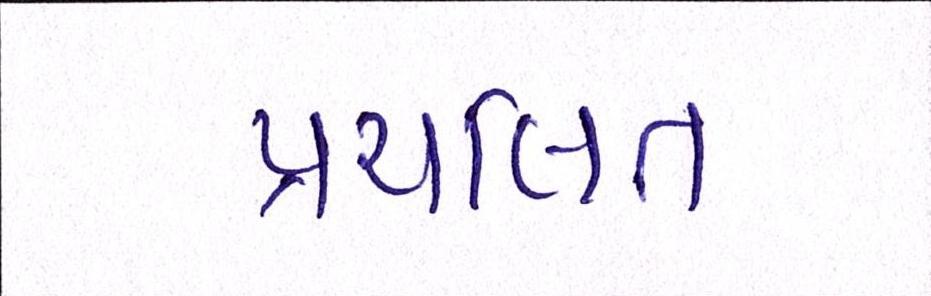 પ્રચલિત